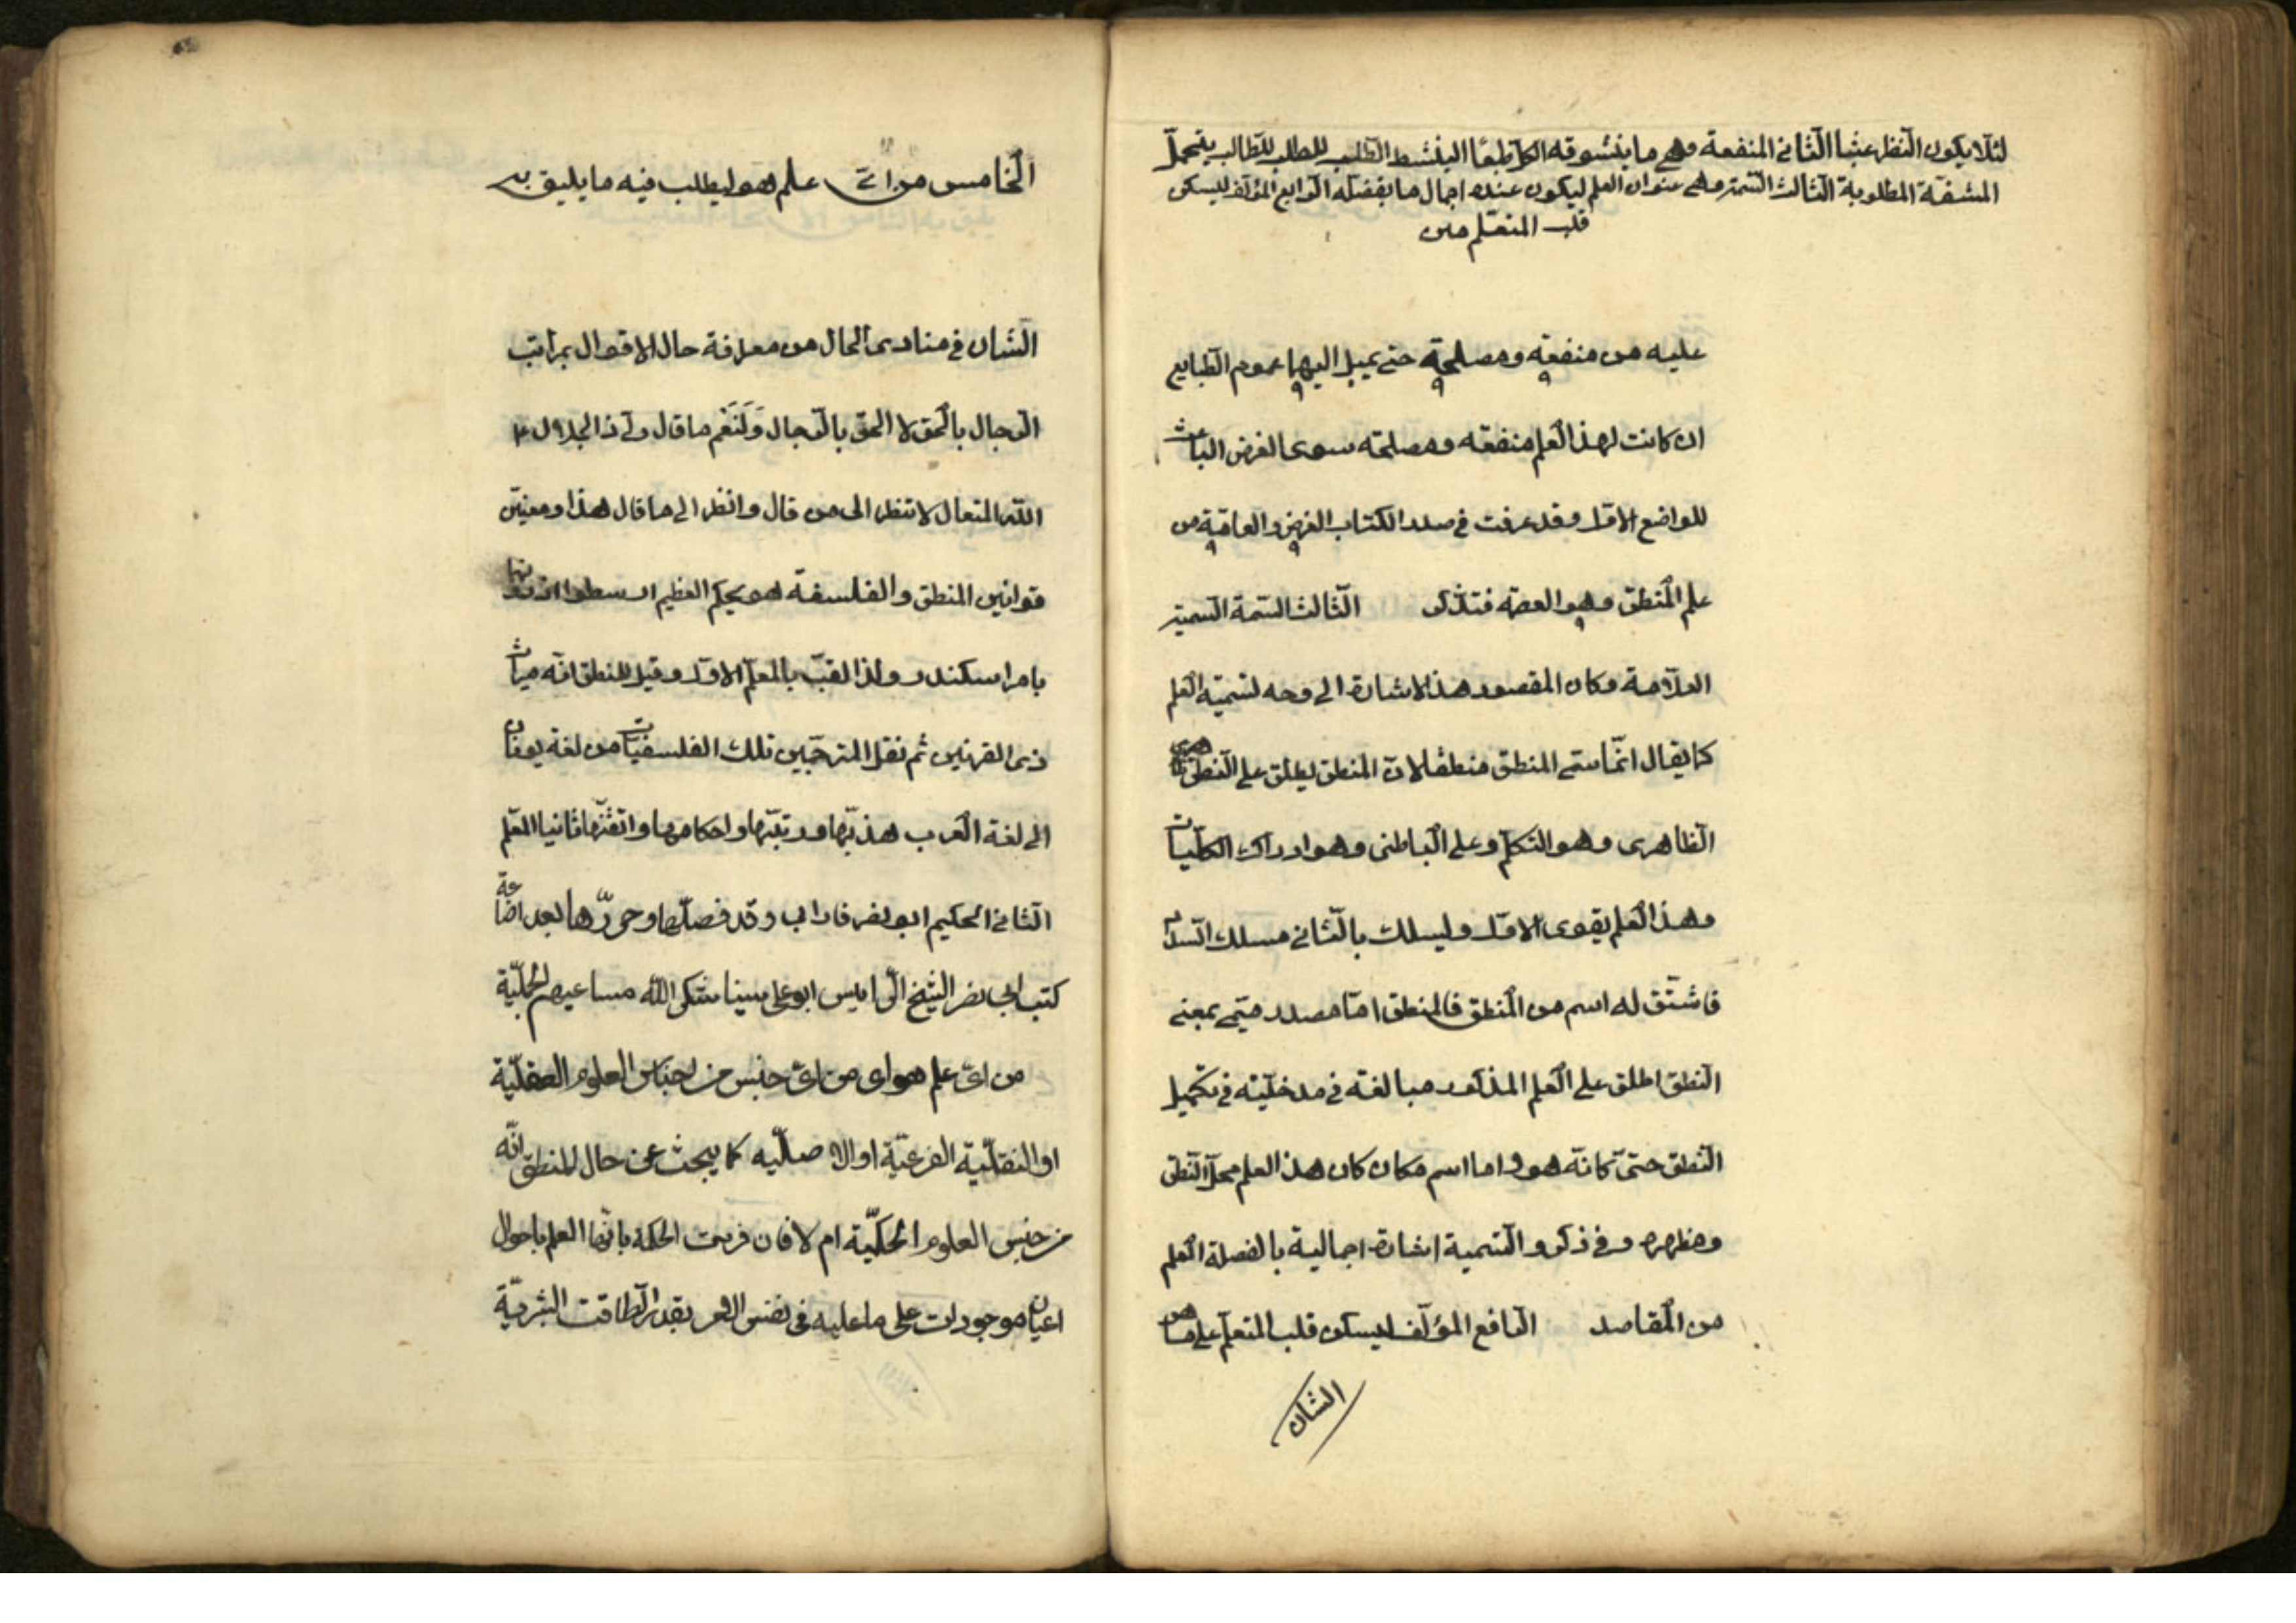 لئلا يكون النظر عبثا الثاني المنفعة وهي ما يتشوقه الكل طبعا لينشط الطالب للطلب يتحمل
المشقة المطلوبة الثالث التسمية وهي عنوان العلم ليكون عنده اجمال ما يفصله الرابع المؤلف ليسكن
قلب المتعلم من
عليه من منفعة ومصلحة حتى يميل اليها عموم الطبايع
ان كانت لهذا العلم منفعة ومصلحة سوى الغرض الباعث
للواضع الاول وقد عرفت في صدر الكتاب الغرض والعاقبة من
علم المنطق وهو العصمة فتذكر الثالث السمة التسمية
العلامة وكان المقصود هذا لاشارة الى وجه لتسمية العلم
كما يقال انما سمى المنطق منطقا لان المنطق يطلق على النطق
الظاهرى وهو التكلم وعلى الباطنى وهو ادراك الكليات
وهذا العلم يقوى الاول وليسلك بالثانى مسلك السداد
فاشتق له اسم من المنطق فالمنطق اما مصدر ميمى بمعنى
النطق اطلق على العلم المذكور مبالغة في مدخليته في تكميل
النطق حتى كانه هو واما اسم مكان كان هذا العلم محل النطق
ومظهره وفي ذكر والتسمية اشارة اجمالية بالفصلة العلم
من المقاصد الرافع المؤلف ليسكن قلب المتعلم على ما هو
الشان
الخامس من اى علم هو ليطلب فيه ما يليق به
الشان في منادى الحال من معرفة حال الاقوال بمراتب
الرجال بالحق لا الحق بالرجال ولنعم ما قال ولى ذا الجلال
الله المتعال لا تنظر الى من قال وانظر الى ما قال هذا ومعنين
قوانين المنطق والفلسفة هو يحكم العظيم ارسطوا
بامر اسكندر ولذا لقب بالمعلم الاول وقيل للمنطق انه ميراث
ذى القرنين ثم نقل المترجمين تلك الفلسفيات من لغة يونان
الى لغة العرب هذبها ورتبها واحكامها واتقنها ثانيا المعلم
الثانى الحكيم ابو نصر فارابى وقد فصلها وحررها بعد اضاعة
كتب ابى نصر الشيخ الرايس ابو على سينا شكر الله مساعيهم الجلية
من اى علم هو اى من اى جنس من اجناس العلوم العقلية
او النقلية الفرعية او الاصلية كما يبحث عن حال للمنطق انه
من جنس العلوم الحكمية ام لا فان فرست الحكمة بانها العلم باحوال
اعيان موجودات على ما عليه فى نفس الامر بقدر الطاقت البشرية